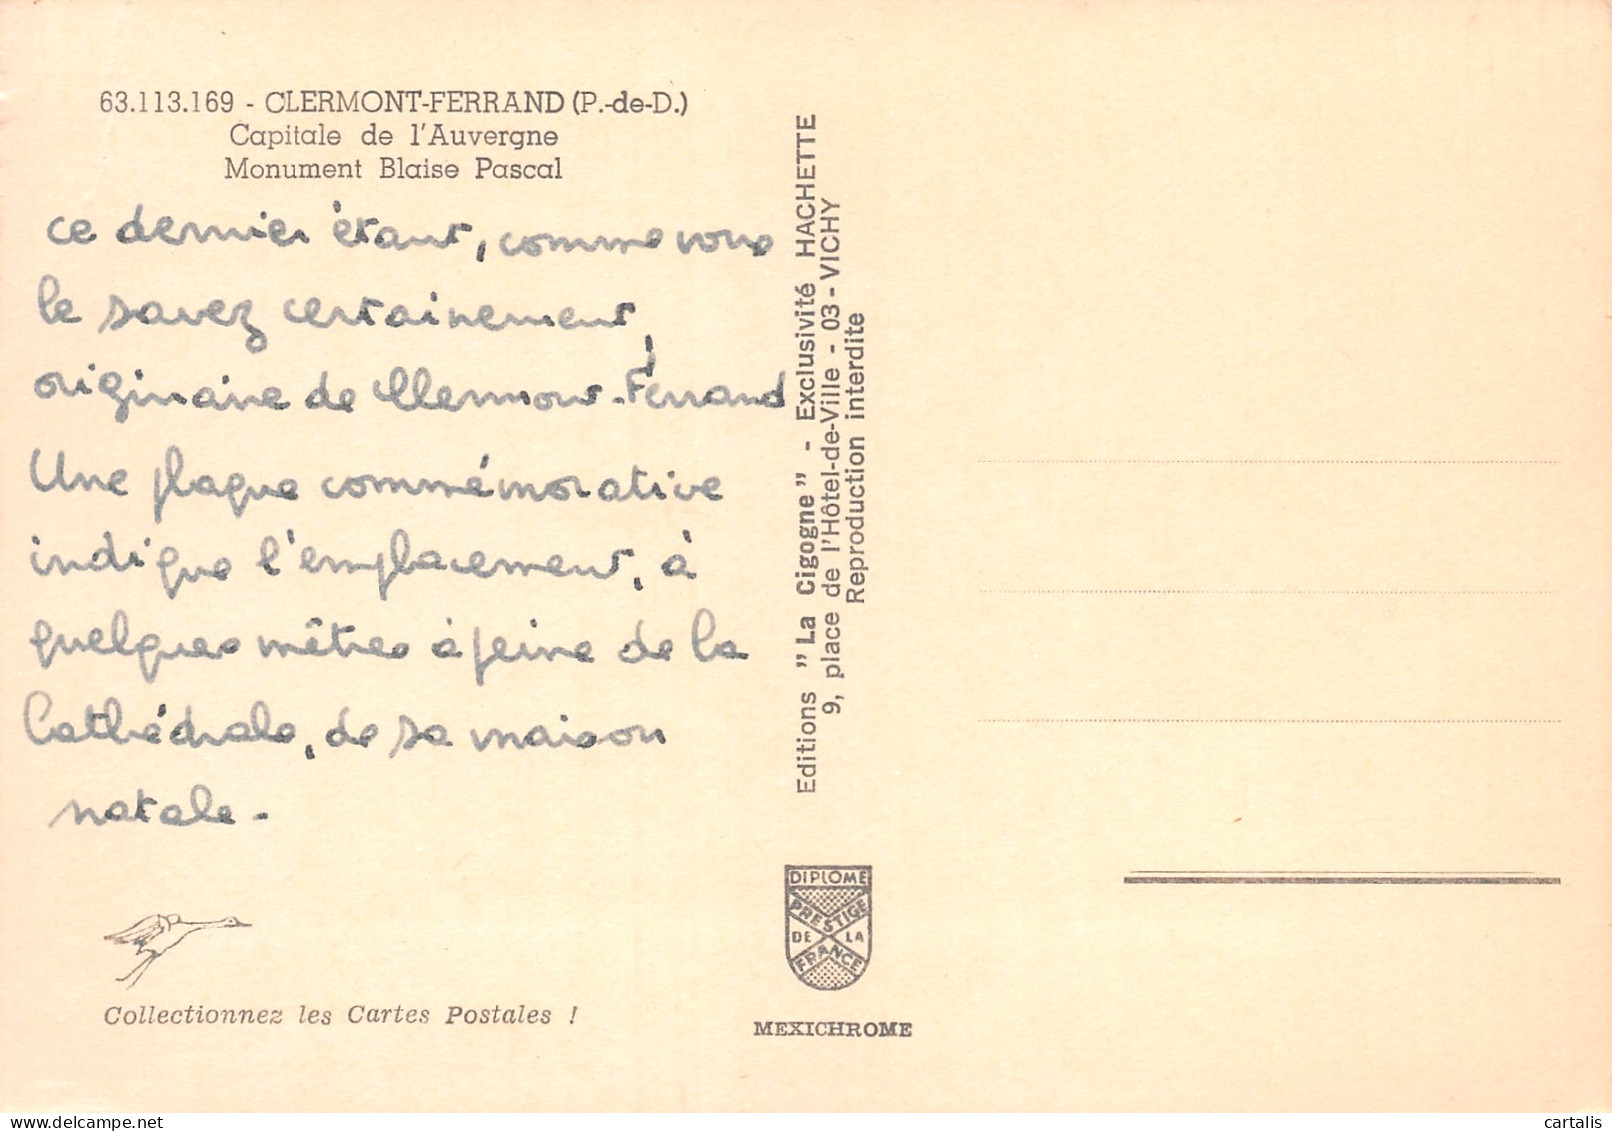 63.113.169 - CLERMONT-FERRAND (P.-de-D.)
Capitale de l'Auvergne
Monument Blaise Pascal
ce dernier étant, comme vous
le savez certainement,
originaire de Clermont-Ferrand
Une plaque commémorative
indique l'emplacement, à
quelques mètres à peine de la
Cathédrale, de sa maison
natale -
Collectionnez les Cartes Postales !
Editions "La Cigogne" - Exclusivité HACHETTE
9, place de l'Hôtel-de-Ville - 03 - VICHY
Reproduction interdite
DIPLOME
PRESTIGE
DE LA
FRANCE
MEXICHROME
cartalis